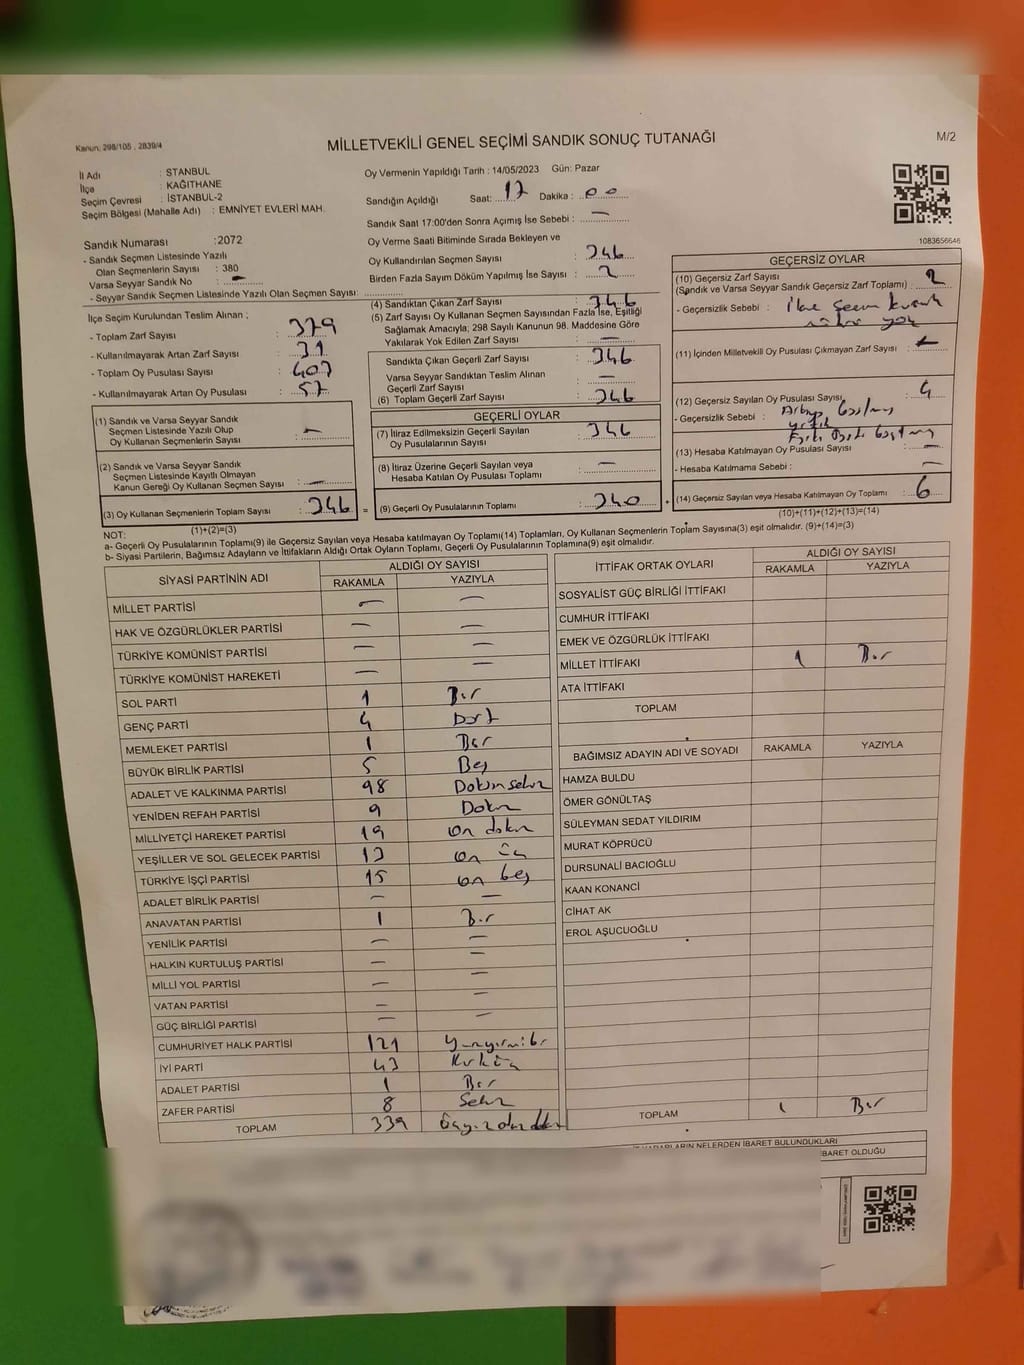 Kanun: 298/105 , 2839/4
MİLLETVEKİLİ GENEL SEÇİMİ SANDIK SONUÇ TUTANAĞI
M/2
İl Adı : İSTANBUL
İlçe : KAĞITHANE
Seçim Çevresi : İSTANBUL-2
Seçim Bölgesi (Mahalle Adı) : EMNİYET EVLERİ MAH.
Oy Vermenin Yapıldığı Tarih : 14/05/2023 Gün: Pazar
Sandığın Açıldığı Saat: 17 Dakika : 00
Sandık Saat 17:00'den Sonra Açımış İse Sebebi : —
Sandık Numarası :2072
- Sandık Seçmen Listesinde Yazılı
Olan Seçmenlerin Sayısı : 380
Varsa Seyyar Sandık No : —
- Seyyar Sandık Seçmen Listesinde Yazılı Olan Seçmen Sayısı:
Oy Verme Saati Bitiminde Sırada Bekleyen ve
Oy Kullandırılan Seçmen Sayısı : 346
Birden Fazla Sayım Döküm Yapılmış İse Sayısı : 2
1083656646
İlçe Seçim Kurulundan Teslim Alınan ;
- Toplam Zarf Sayısı : 379
- Kullanılmayarak Artan Zarf Sayısı : 31
- Toplam Oy Pusulası Sayısı : 407
- Kullanılmayarak Artan Oy Pusulası : 57
(1) Sandık ve Varsa Seyyar Sandık
Seçmen Listesinde Yazılı Olup
Oy Kullanan Seçmenlerin Sayısı : —
(2) Sandık ve Varsa Seyyar Sandık
Seçmen Listesinde Kayıtlı Olmayan
Kanun Gereği Oy Kullanan Seçmen Sayısı : —
(3) Oy Kullanan Seçmenlerin Toplam Sayısı : 346
(1)+(2)=(3)
(4) Sandıktan Çıkan Zarf Sayısı : 346
(5) Zarf Sayısı Oy Kullanan Seçmen Sayısından Fazla İse, Eşitliği
Sağlamak Amacıyla; 298 Sayılı Kanunun 98. Maddesine Göre
Yakılarak Yok Edilen Zarf Sayısı : —
Sandıkta Çıkan Geçerli Zarf Sayısı : 346
Varsa Seyyar Sandıktan Teslim Alınan
Geçerli Zarf Sayısı : —
(6) Toplam Geçerli Zarf Sayısı : 346
GEÇERLİ OYLAR
(7) İtiraz Edilmeksizin Geçerli Sayılan
Oy Pusulalarının Sayısı : 346
(8) İtiraz Üzerine Geçerli Sayılan veya
Hesaba Katılan Oy Pusulası Toplamı : —
= (9) Geçerli Oy Pusulalarının Toplamı : 340
GEÇERSİZ OYLAR
(10) Geçersiz Zarf Sayısı
(Sandık ve Varsa Seyyar Sandık Geçersiz Zarf Toplamı) : 2
- Geçersizlik Sebebi : İlçe Seçim Kurulu
mührü yok
(11) İçinden Milletvekili Oy Pusulası Çıkmayan Zarf Sayısı :
(12) Geçersiz Sayılan Oy Pusulası Sayısı : 4
- Geçersizlik Sebebi :
(13) Hesaba Katılmayan Oy Pusulası Sayısı : —
- Hesaba Katılmama Sebebi : —
(14) Geçersiz Sayılan veya Hesaba Katılmayan Oy Toplamı : 6
(10)+(11)+(12)+(13)=(14)
NOT:
a- Geçerli Oy Pusulalarının Toplamı(9) ile Geçersiz Sayılan veya Hesaba katılmayan Oy Toplamı(14) Toplamları, Oy Kullanan Seçmenlerin Toplam Sayısına(3) eşit olmalıdır. (9)+(14)=(3)
b- Siyasi Partilerin, Bağımsız Adayların ve İttifakların Aldığı Ortak Oyların Toplamı, Geçerli Oy Pusulalarının Toplamına(9) eşit olmalıdır.
SİYASİ PARTİNİN ADI ALDIĞI OY SAYISI
RAKAMLA YAZIYLA
MİLLET PARTİSİ — —
HAK VE ÖZGÜRLÜKLER PARTİSİ — —
TÜRKİYE KOMÜNİST PARTİSİ — —
TÜRKİYE KOMÜNİST HAREKETİ — —
SOL PARTİ 1 Bir
GENÇ PARTİ 4 Dört
MEMLEKET PARTİSİ 1 Bir
BÜYÜK BİRLİK PARTİSİ 5 Beş
ADALET VE KALKINMA PARTİSİ 98 Doksansekiz
YENİDEN REFAH PARTİSİ 9 Dokuz
MİLLİYETÇİ HAREKET PARTİSİ 19 on dokuz
YEŞİLLER VE SOL GELECEK PARTİSİ 13 on üç
TÜRKİYE İŞÇİ PARTİSİ 15 on beş
ADALET BİRLİK PARTİSİ — —
ANAVATAN PARTİSİ 1 Bir
YENİLİK PARTİSİ — —
HALKIN KURTULUŞ PARTİSİ — —
MİLLİ YOL PARTİSİ — —
VATAN PARTİSİ — —
GÜÇ BİRLİĞİ PARTİSİ — —
CUMHURİYET HALK PARTİSİ 121 Yüzyirmibir
İYİ PARTİ 43 Kırküç
ADALET PARTİSİ 1 Bir
ZAFER PARTİSİ 8 Sekiz
TOPLAM 339 Üçyüzotuzdokuz
İTTİFAK ORTAK OYLARI ALDIĞI OY SAYISI
RAKAMLA YAZIYLA
SOSYALİST GÜÇ BİRLİĞİ İTTİFAKI
CUMHUR İTTİFAKI
EMEK VE ÖZGÜRLÜK İTTİFAKI
MİLLET İTTİFAKI 1 Bir
ATA İTTİFAKI
TOPLAM
BAĞIMSIZ ADAYIN ADI VE SOYADI RAKAMLA YAZIYLA
HAMZA BULDU
ÖMER GÖNÜLTAŞ
SÜLEYMAN SEDAT YILDIRIM
MURAT KÖPRÜCÜ
DURSUNALİ BACIOĞLU
KAAN KONANCİ
CİHAT AK
EROL AŞUCUOĞLU
TOPLAM 1 Bir
NELERDEN İBARET BULUNDUKLARI
İBARET OLDUĞU